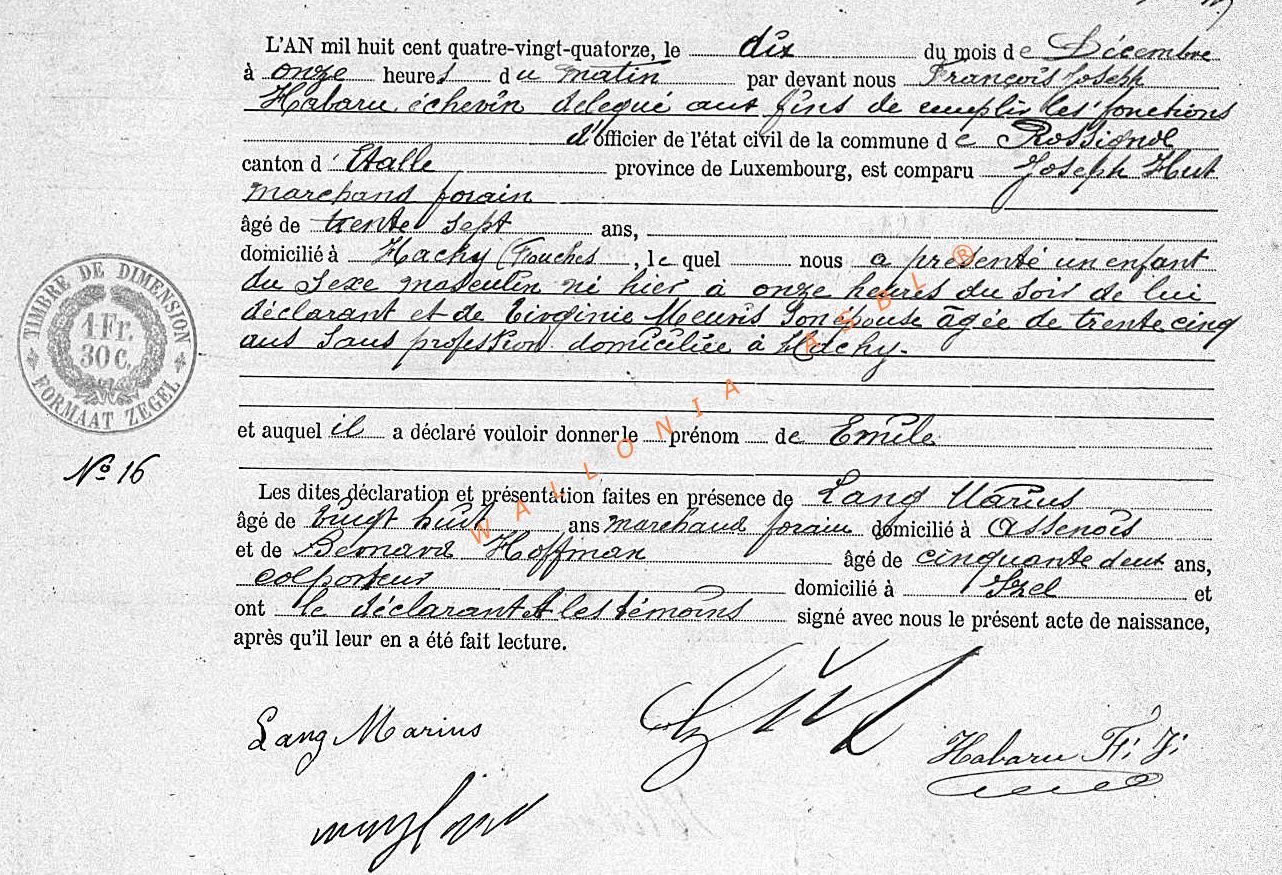 L'AN mil huit cent quatre-vingt-quatorze, le dix du mois de Décembre
à onze heures du matin par devant nous François Joseph
Habaru, échevin delegué aux fins de remplir les fonctions
d'officier de l'état civil de la commune de Rossignol
canton d'Etalle province de Luxembourg, est comparu Joseph Hut
marchand forain
âgé de trente sept ans,
domicilié à Hachy (Fouches , le quel nous a présenté un enfant
du sexe masculin né hier à onze heures du soir de lui
déclarant et de Virginie Meuris son épouse âgée de trente cinq
ans sans profession domiciliée à Hachy.
et auquel il a déclaré vouloir donner le prénom de Emile
Les dites déclaration et présentation faites en présence de Lang Marius
âgé de vingt huit ans marchand forain domicilié à Assenois
et de Bernard Hoffman âgé de cinquante deux ans,
colporteur domicilié à Izel et
ont le déclarant et les témoins signé avec nous le présent acte de naissance,
après qu'il leur en a été fait lecture.
TIMBRE DE DIMENSION
1 Fr.
30 C.
FORMAAT ZEGEL
No 16
WALLONIA ASBL ®
Lang Marius
Habaru F. J.